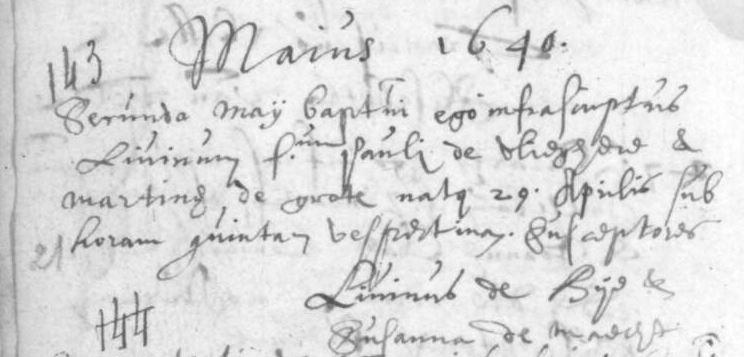 143 Maius 1640.
Secunda Maÿ baptĩui ego infrascriptus
Livinum f.um Pauli de Vlieghere &
Martinę de Grote natq 29. Aprilis sub
21 horam quintam vespertinam. Susceptores
Livinus de Bÿe &
144 Susanna de